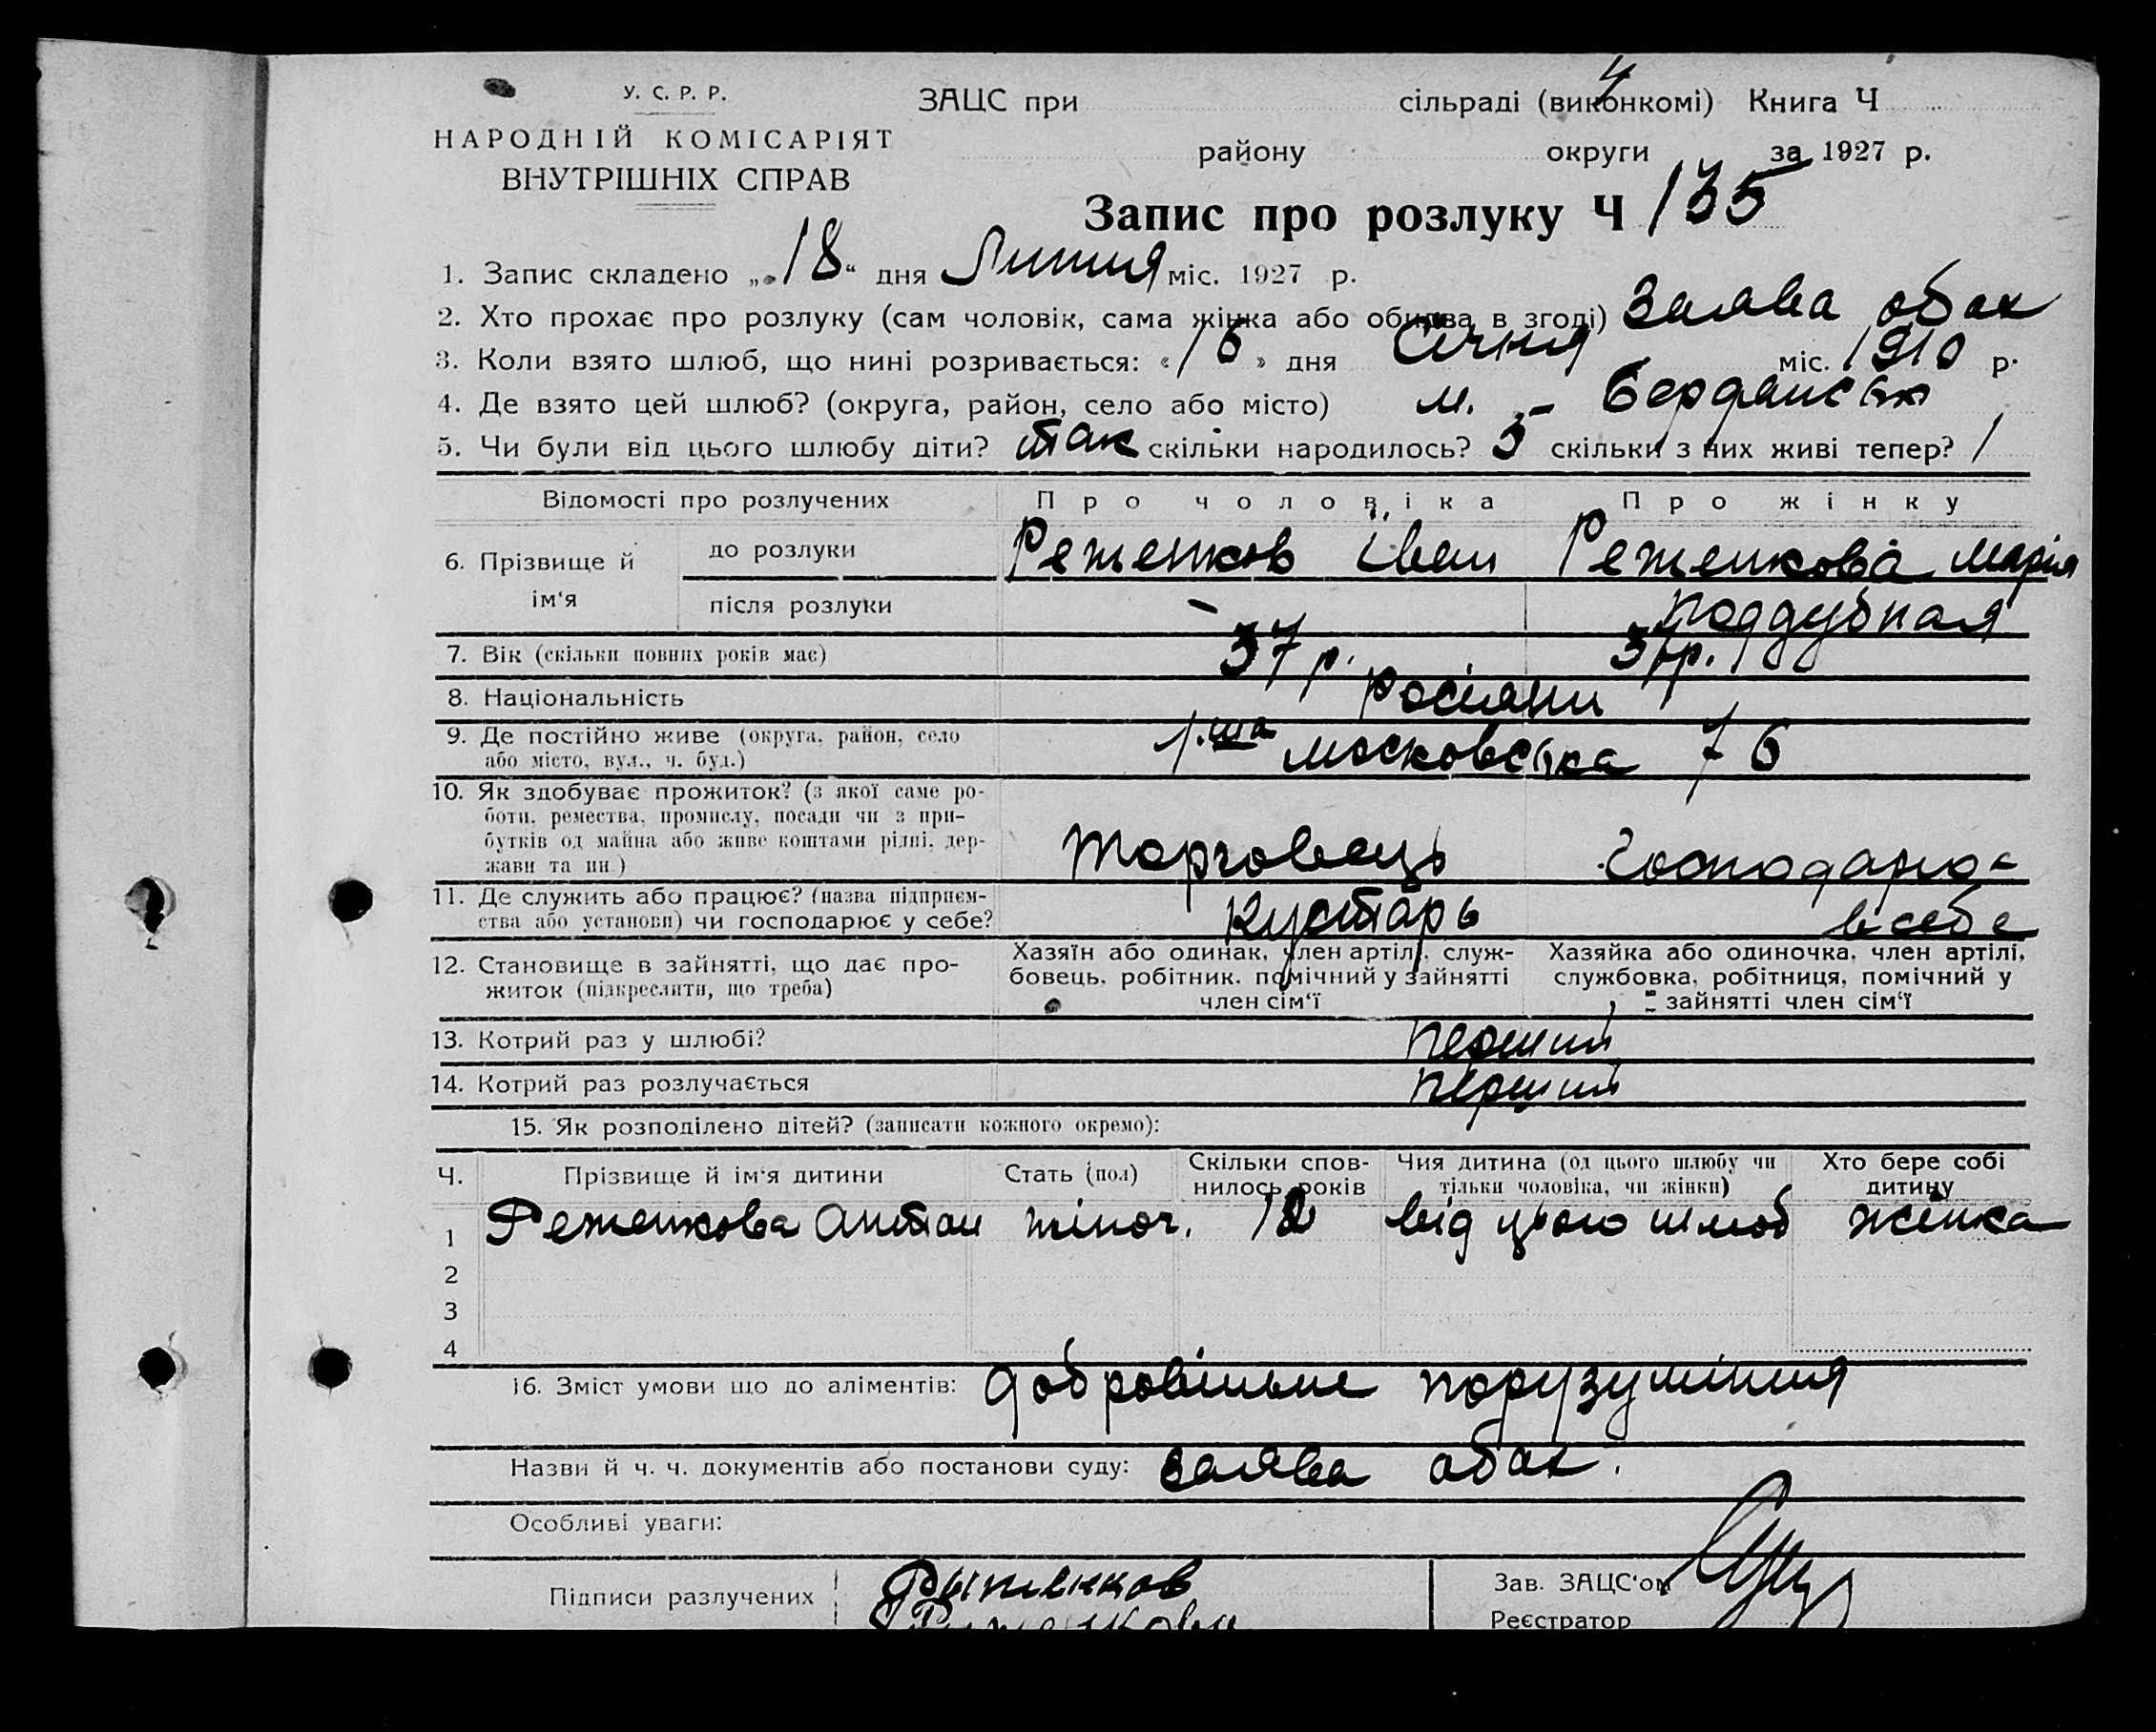 У. С. Р. Р.
НАРОДНІЙ КОМІСАРІЯТ
ВНУТРІШНІХ СПРАВ
ЗАЦС при сільраді (виконкомі) Книга Ч 4
району округи за 1927 р.
Запис про розлуку Ч 135
1. Запис складено „18“ дня Липня міс. 1927 р.
2. Хто прохає про розлуку (сам чоловік, сама жінка або обидва в згоді) Заява обох
3. Коли взято шлюб, що нині розривається: «16» дня Січня міс. 1910 р.
4. Де взято цей шлюб? (округа, район, село або місто) м. - Бердянськ
5. Чи були від цього шлюбу діти? так скільки народилось? 5 скільки з них живі тепер? 1
Відомості про розлучених Про чоловіка Про жінку
6. Прізвище й ім‘я
до розлуки Реженков Іван Реженкова Марія
після розлуки - Поддубная
7. Вік (скільки повних років має) 37 р. 37 р.
8. Національність росіяни
9. Де постійно живе (округа, район, село
або місто, вул., ч. буд.) 1.ша московська 76
10. Як здобуває прожиток? (з якої саме ро-
боти, ремества, промислу, посади чи з при-
бутків од майна або живе коштами рідні, дер-
жави та ин.) торговець Господарює
11. Де служить або працює? (назва підприєм-
ства або установи) чи господарює у себе? Кустарь в себе
12. Становище в зайнятті, що дає про-
житок (підкреслити, що треба)
Хазяїн або одинак, член артілі, служ-
бовець, робітник, помічний у зайнятті
член сім‘ї
Хазяйка або одиночка, член артілі,
службовка, робітниця, помічний у
зайнятті член сім‘ї
13. Котрий раз у шлюбі? перший
14. Котрий раз розлучається перший
15. Як розподілено дітей? (записати кожного окремо):
Ч. Прізвище й ім‘я дитини Стать (пол) Скільки спов-
нилось років Чия дитина (од цього шлюбу чи
тільки чоловіка, чи жінки) Хто бере собі
дитину
1 Реженкова жіноч. 12 від цього шлюб жінка
2
3
4
16. Зміст умови що до аліментів: добровільне порузуміння
Назви й ч. ч. документів або постанови суду: заява обох.
Особливі уваги:
Підписи разлучених Рыженков
Зав. ЗАЦС‘ом
Реєстратор